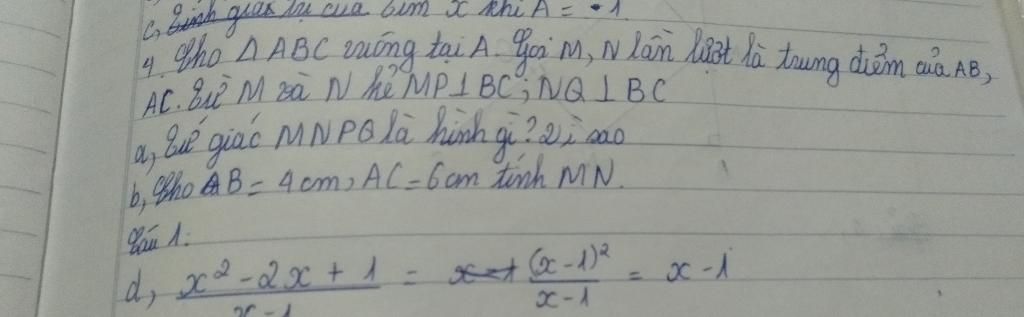 c, giá trị của tìm x khi A = -1
4. Cho Δ ABC vuông tại A. Gọi M, N lần lượt là trung điểm của AB,
AC. Từ M và N kẻ MP ⊥ BC; NQ ⊥ BC
a, Tứ giác MNPQ là hình gì? Vì sao
b, Cho AB = 4cm, AC = 6cm tính MN.
Câu 1:
d, (x² - 2x + 1)/(x - 1) = (x - 1)²/(x - 1) = x - 1